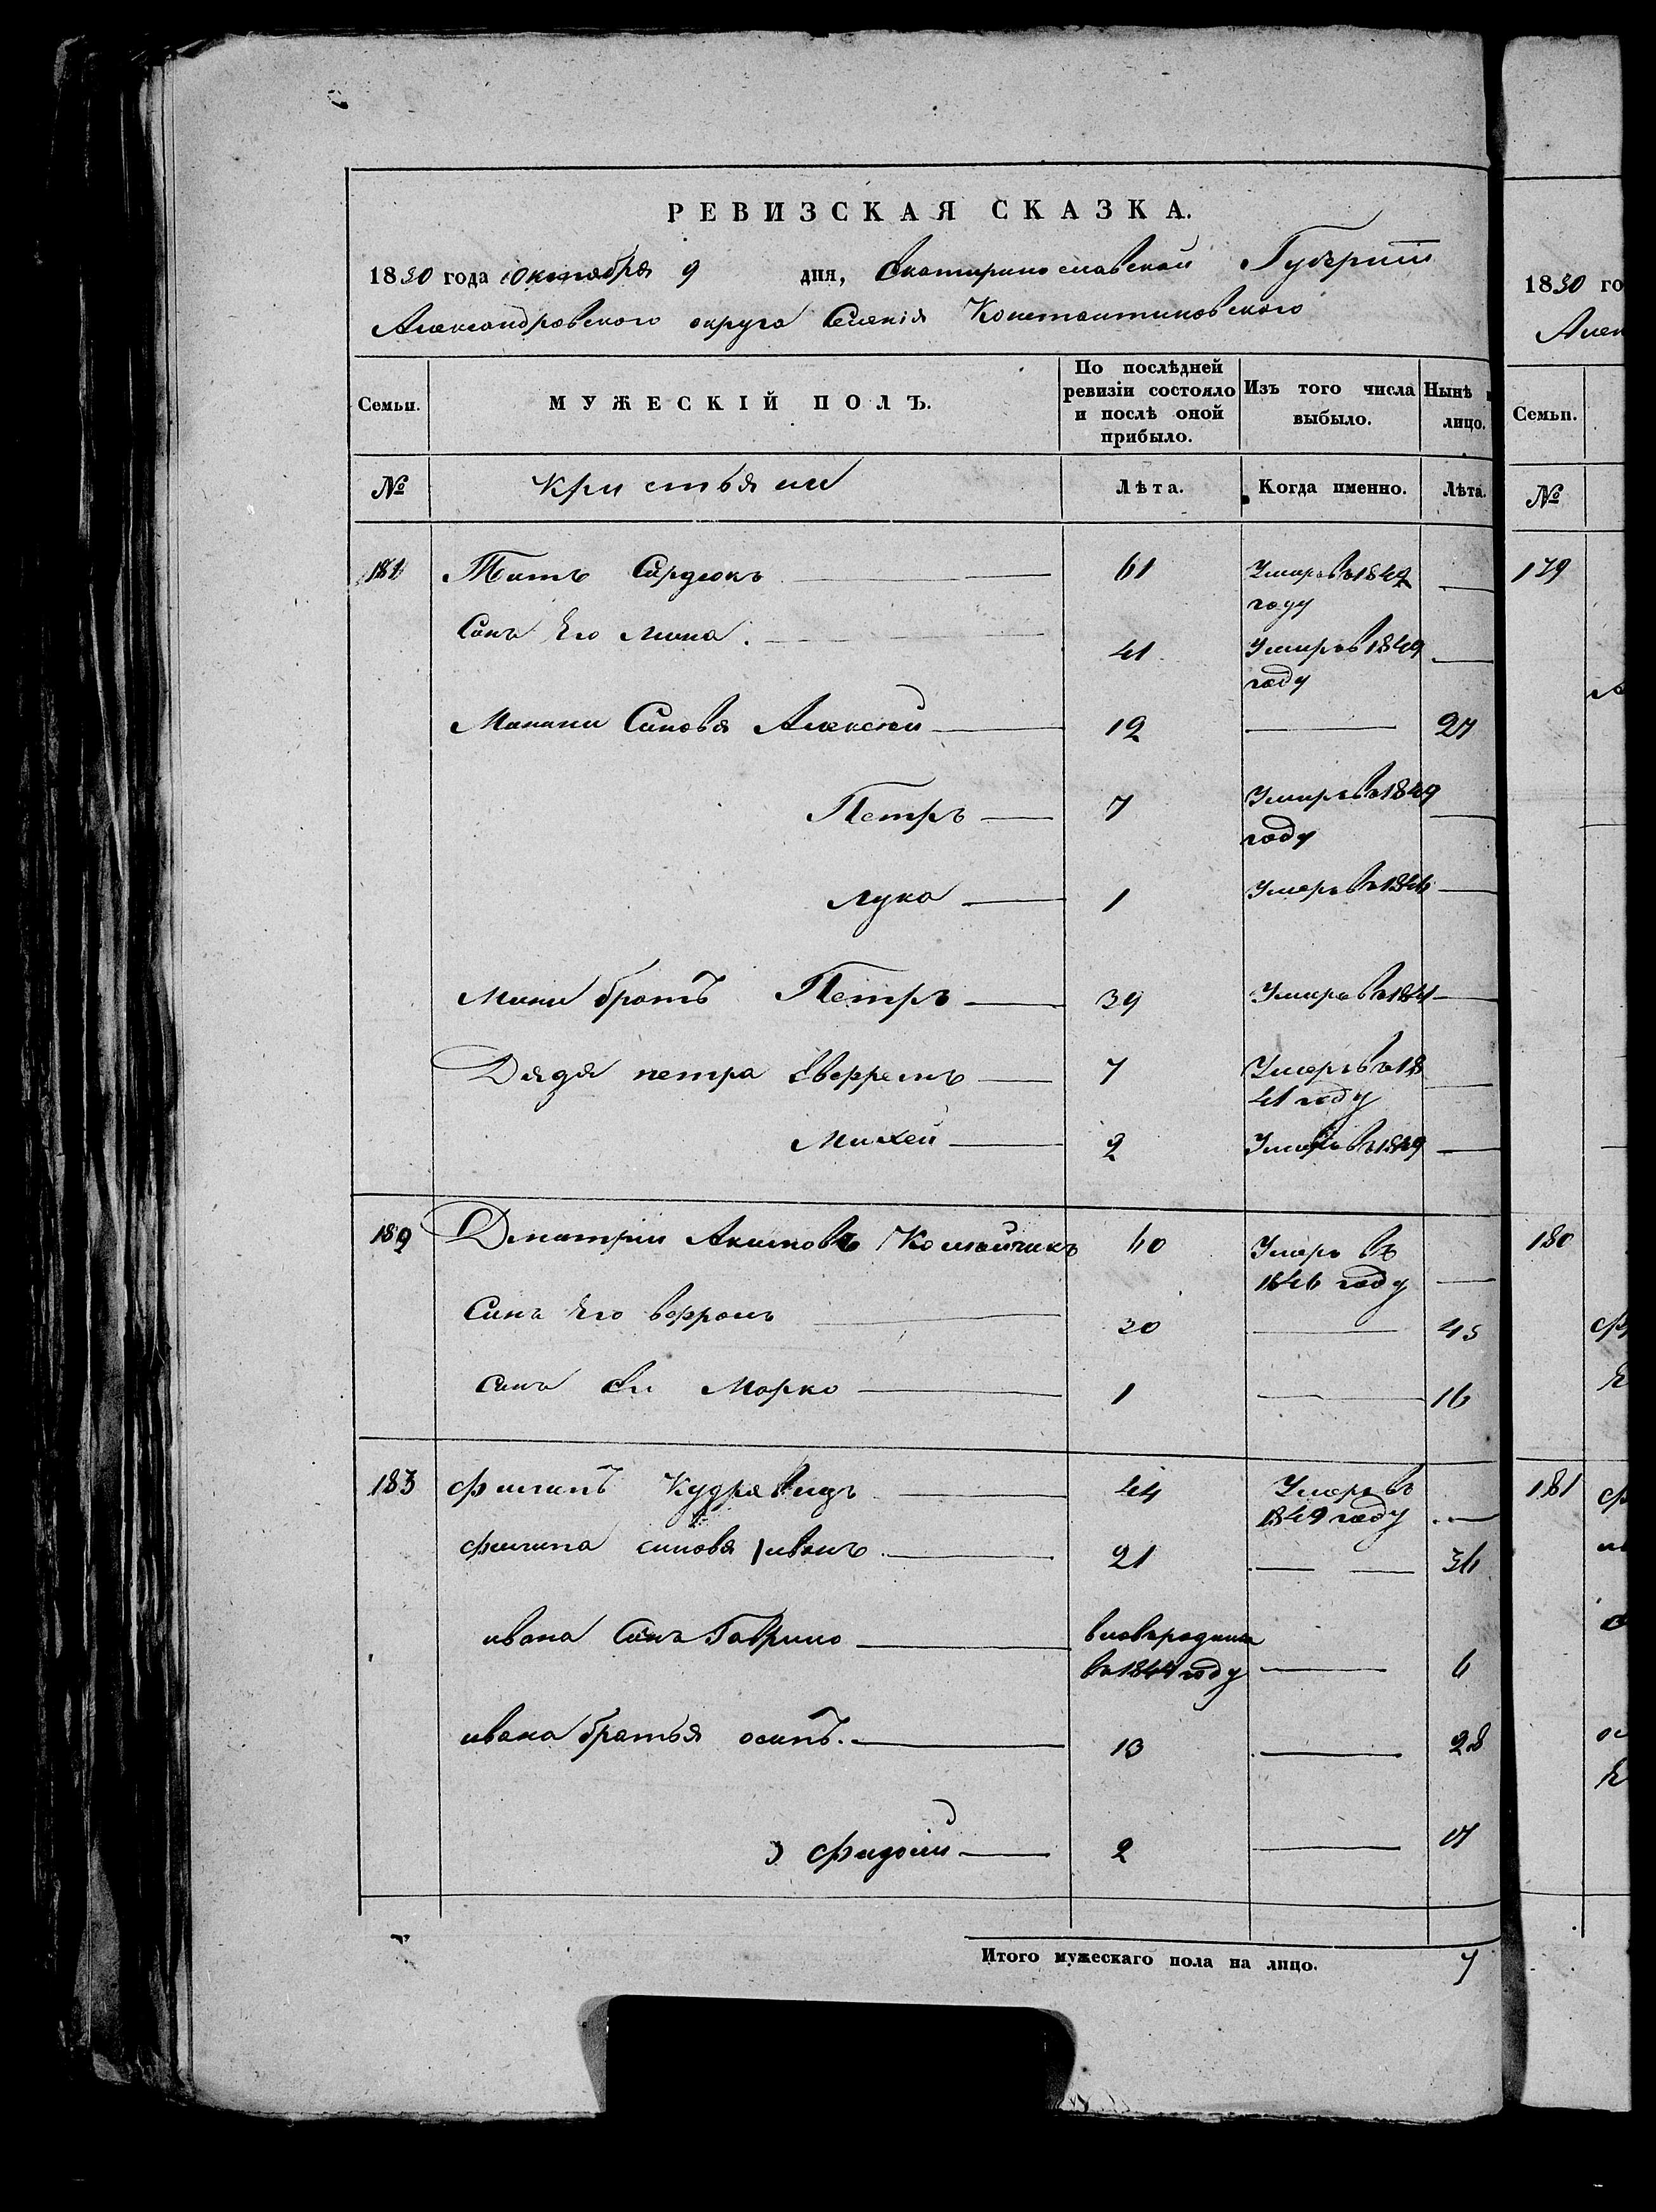 РЕВИЗСКАЯ СКАЗКА.
1850 года Октября 9 дня, Екатиринославской Губернии
Александровского округа Селенія Константиновского
Семьи. МУЖЕСКІЙ ПОЛЪ. По послѣдней ревизіи состояло и послѣ оной прибыло. Изъ того числа выбыло. Нынѣ лицо.
№ Кристьяни Лѣта. Когда именно. Лѣта.
181 Титъ Сердюкъ 61 Умеръ въ 1842 году
Синъ Его Мина 41 Умеръ в 1849 году
Синовя Алексей 12 27
Петръ 7 Умеръ въ 1849 году
Лука 1 Умеръ въ 1846
Мини братъ Петръ 39 Умеръ въ 1841
Дядя петра 7 Умеръ въ 1841 году
Михей 2 Умеръ въ 1849
182 Дмитрии Акимовъ 60 Умеръ въ 1846 году
Синъ Его 30 45
Синъ Марко 1 16
183 филипъ Кудрявицъ 44 Умеръ въ 1849 году
филипа синовя иванъ 21 36
ивана Синъ Гаврило въ 1844 году 6
ивана братья осипъ 13 28
3 фидоси 2 17
Итого мужескаго пола на лицо. 7
1850 го
Алек
Семьи.
№
179
180
181